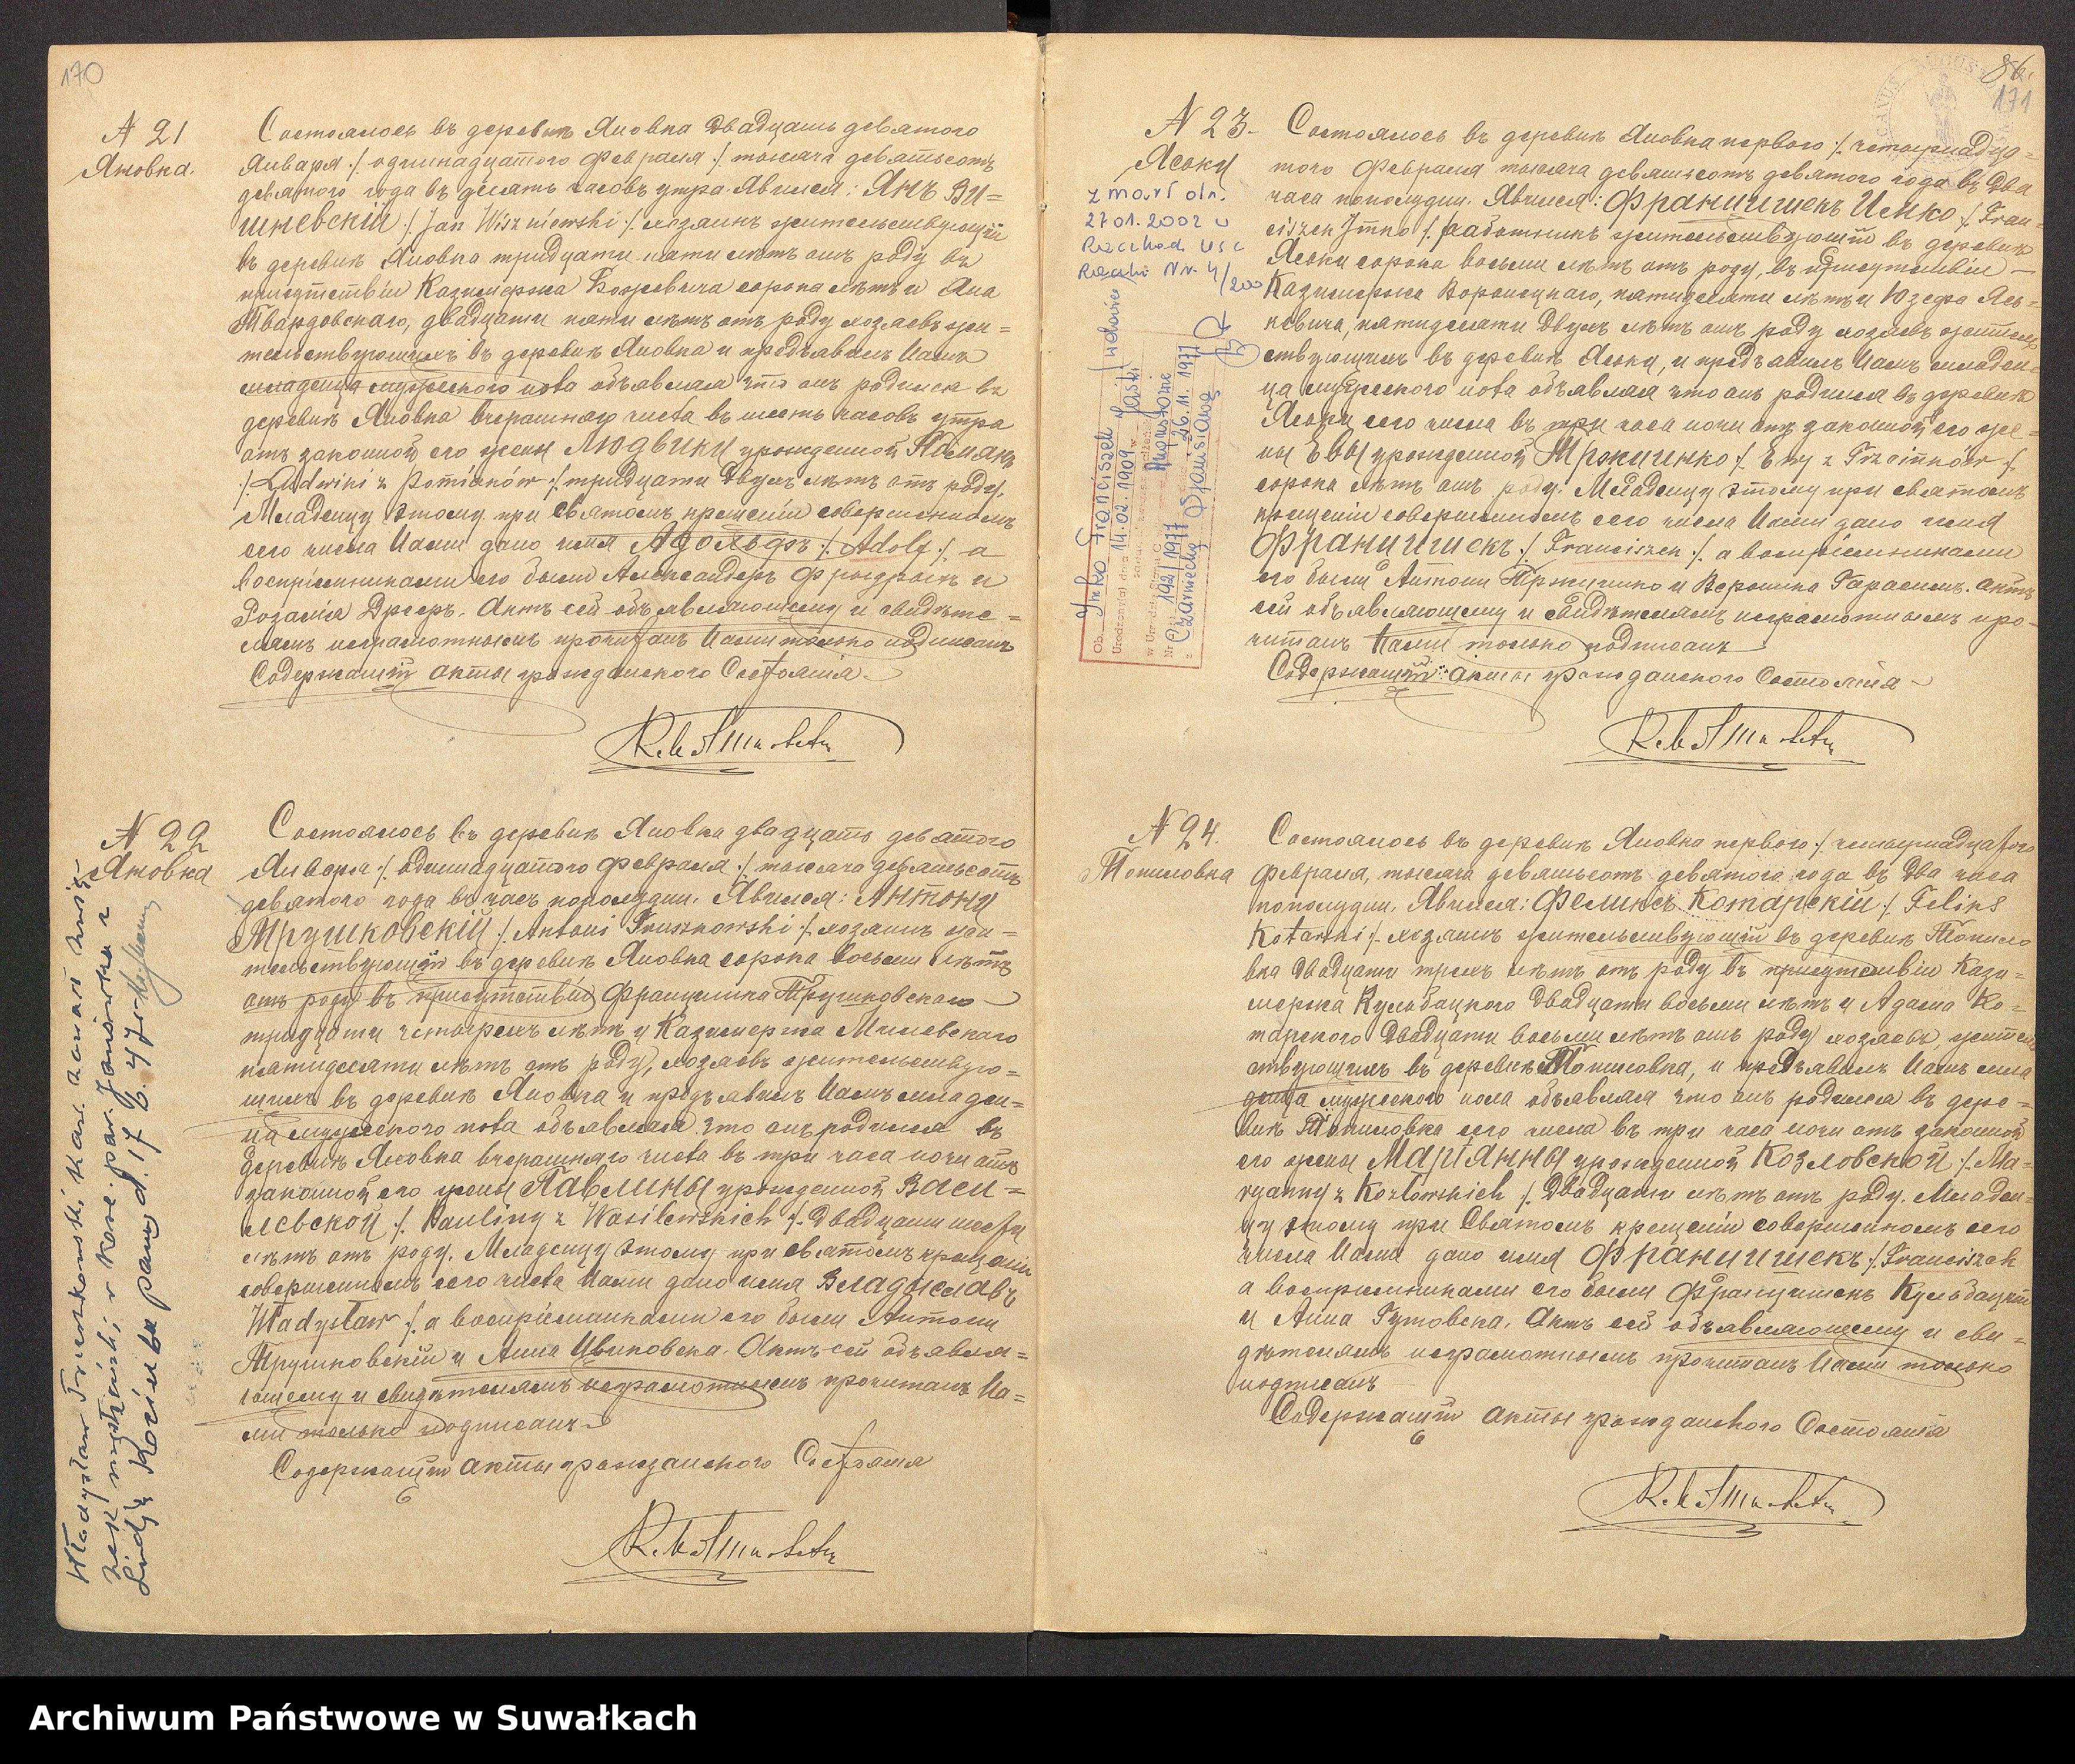 170
№ 21
Яновка.
Состоялось въ деревнѣ Яновка двадцать девятого
Января /: одинадцатого Февраля :/ тысяча девятьсотъ
девятого года въ десять часовъ утра. Явился: Янъ Ви=
шневскій /: Jan Wiszniewski :/ хозяинъ жительствующій
въ деревнѣ Яновка тридцати пяти лѣтъ отъ роду въ
присутствіи Казимержа Божевича сорока лѣтъ и Яна
Твардовскаго, двадцати пяти лѣтъ отъ роду хозяевъ жи=
тельствующихъ въ деревнѣ Яновка и предъявилъ Намъ
младенца мужескаго пола объявляя что онъ родился въ
деревнѣ Яновка вчерашняго числа въ шесть часовъ утра
отъ законной его жены Людвики урожденной
/: Ludwiki z Pomianów :/ тридцати двухъ лѣтъ отъ роду.
Младенцу этому при святомъ крещеніи совершенномъ
сего числа Нами дано имя Адольфъ /: Adolf :/ а
воспріемниками его были Александеръ Фрыдрыхъ и
Розалія Дресръ. Актъ сей объявляющему и свидѣте=
лямъ неграмотнымъ прочитанъ Нами только подписанъ
Содержащій акты гражданского Состоянія

№ 22
Яновка
Состоялось въ деревнѣ Яновка двадцать девятого
Января /: одинадцатого Февраля :/ тысяча девятьсотъ
девятого года въ часъ пополудни. Явился: Антони
Трушковскій /: Antoni Truszkowski :/ хозяинъ жи=
тельствующій въ деревнѣ Яновка сорока восьми лѣтъ
отъ роду въ присутствіи Францишка Трушковскаго
тридцати четырехъ лѣтъ и Казимержа Милевскаго
пятидесяти лѣтъ отъ роду, хозяевъ жительствую=
щихъ въ деревнѣ Яновка и предъявилъ Намъ младен=
ца мужескаго пола объявляя что онъ родился въ
деревнѣ Яновка вчерашняго числа въ три часа ночи отъ
законной его жены Павлины урожденной Васи=
левской /: Pauliny z Wasilewskich :/ двадцати шести
лѣтъ отъ роду. Младенцу этому при святомъ крещеніи
совершенномъ сего числа Нами дано имя Владыславъ
Władysław :/ а воспріемниками его были Антони
Трушковскій и Анна Цвиковска. Актъ сей объявля=
ющему и свидѣтелямъ неграмотнымъ прочитанъ На=
ми только подписанъ
Содержащій акты гражданского Состоянія

Władysław Truszkowski
par. Janówka z
17 6. 47 r.

86.
171
№ 23.
Яськи
zmarł dn.
27.01.2002 w
Raczkach USC
Raczki Nr. 4/200
Ob. Jnko Franciszek
Urodzony dnia 14.02.1909 Jaśki
192/1977
Augustowie
26.11.1977
Состоялось въ деревнѣ Яновка первого /: четырнадца=
того Февраля тысяча девятьсотъ девятого года въ два
часа пополудни. Явился: Францишекъ Инко /: Fran=
ciszek Jnko :/ работникъ жительствующій въ деревнѣ
Яськи сорока восьми лѣтъ отъ роду, въ присутствіи
Казимержа Воронецкаго, пятидесяти лѣтъ и Юзефа Ясь=
кевича, пятидесяти двухъ лѣтъ отъ роду хозяевъ житель
ствующихъ въ деревнѣ Яськи, и предъявилъ Намъ младен=
ца мужескаго пола объявляя что онъ родился въ деревнѣ
Яськи сего числа въ три часа ночи отъ законной его же=
ны Евы урожденной Тржцинко /: Ewy z Trzcinków :/
сорока лѣтъ отъ роду. Младенцу этому при святомъ
крещеніи совершенномъ сего числа Нами дано имя
Францишекъ /: Franciszek :/ а воспріемниками
его были Антони Тржцинко и Вероника Гарасимъ. Актъ
сей объявляющему и свидѣтелямъ неграмотнымъ про-
читанъ Нами только подписанъ
Содержащій акты гражданского Состоянія

№ 24.
Топиловка
Состоялось въ деревнѣ Яновка первого /: четырнадцатого
Февраля, тысяча девятьсотъ девятого года въ два часа
пополудни. Явился: Феликсъ Котарскій /: Feliks
Kotarski :/ хозяинъ жительствующій въ деревнѣ Топило
вка двадцати трехъ лѣтъ отъ роду въ присутствіи Кази=
мержа Кульбацкого двадцати восьми лѣтъ и Адама Ко=
тарского двадцати восьми лѣтъ отъ роду хозяевъ, жител
ствующихъ въ деревнѣ Топиловка, и предъявилъ Намъ мла
денца мужеского пола объявляя что онъ родился въ дере=
внѣ Топиловка сего числа въ три часа ночи отъ законной
его жены Маріанны урожденной Козловской /: Ma=
ryanny z Kozłowskich :/ двадцати лѣтъ отъ роду. Младен=
цу этому при Святомъ крещеніи совершенномъ сего
числа Нами дано имя Францишекъ /: Franciszek
а воспріемниками его были Францишекъ Кульбацкій
и Анна Гутовска. Актъ сей объявляющему и сви=
дѣтелямъ неграмотнымъ прочитанъ Нами только
подписанъ
Содержащій акты гражданского Состоянія
Archiwum Państwowe w Suwałkach